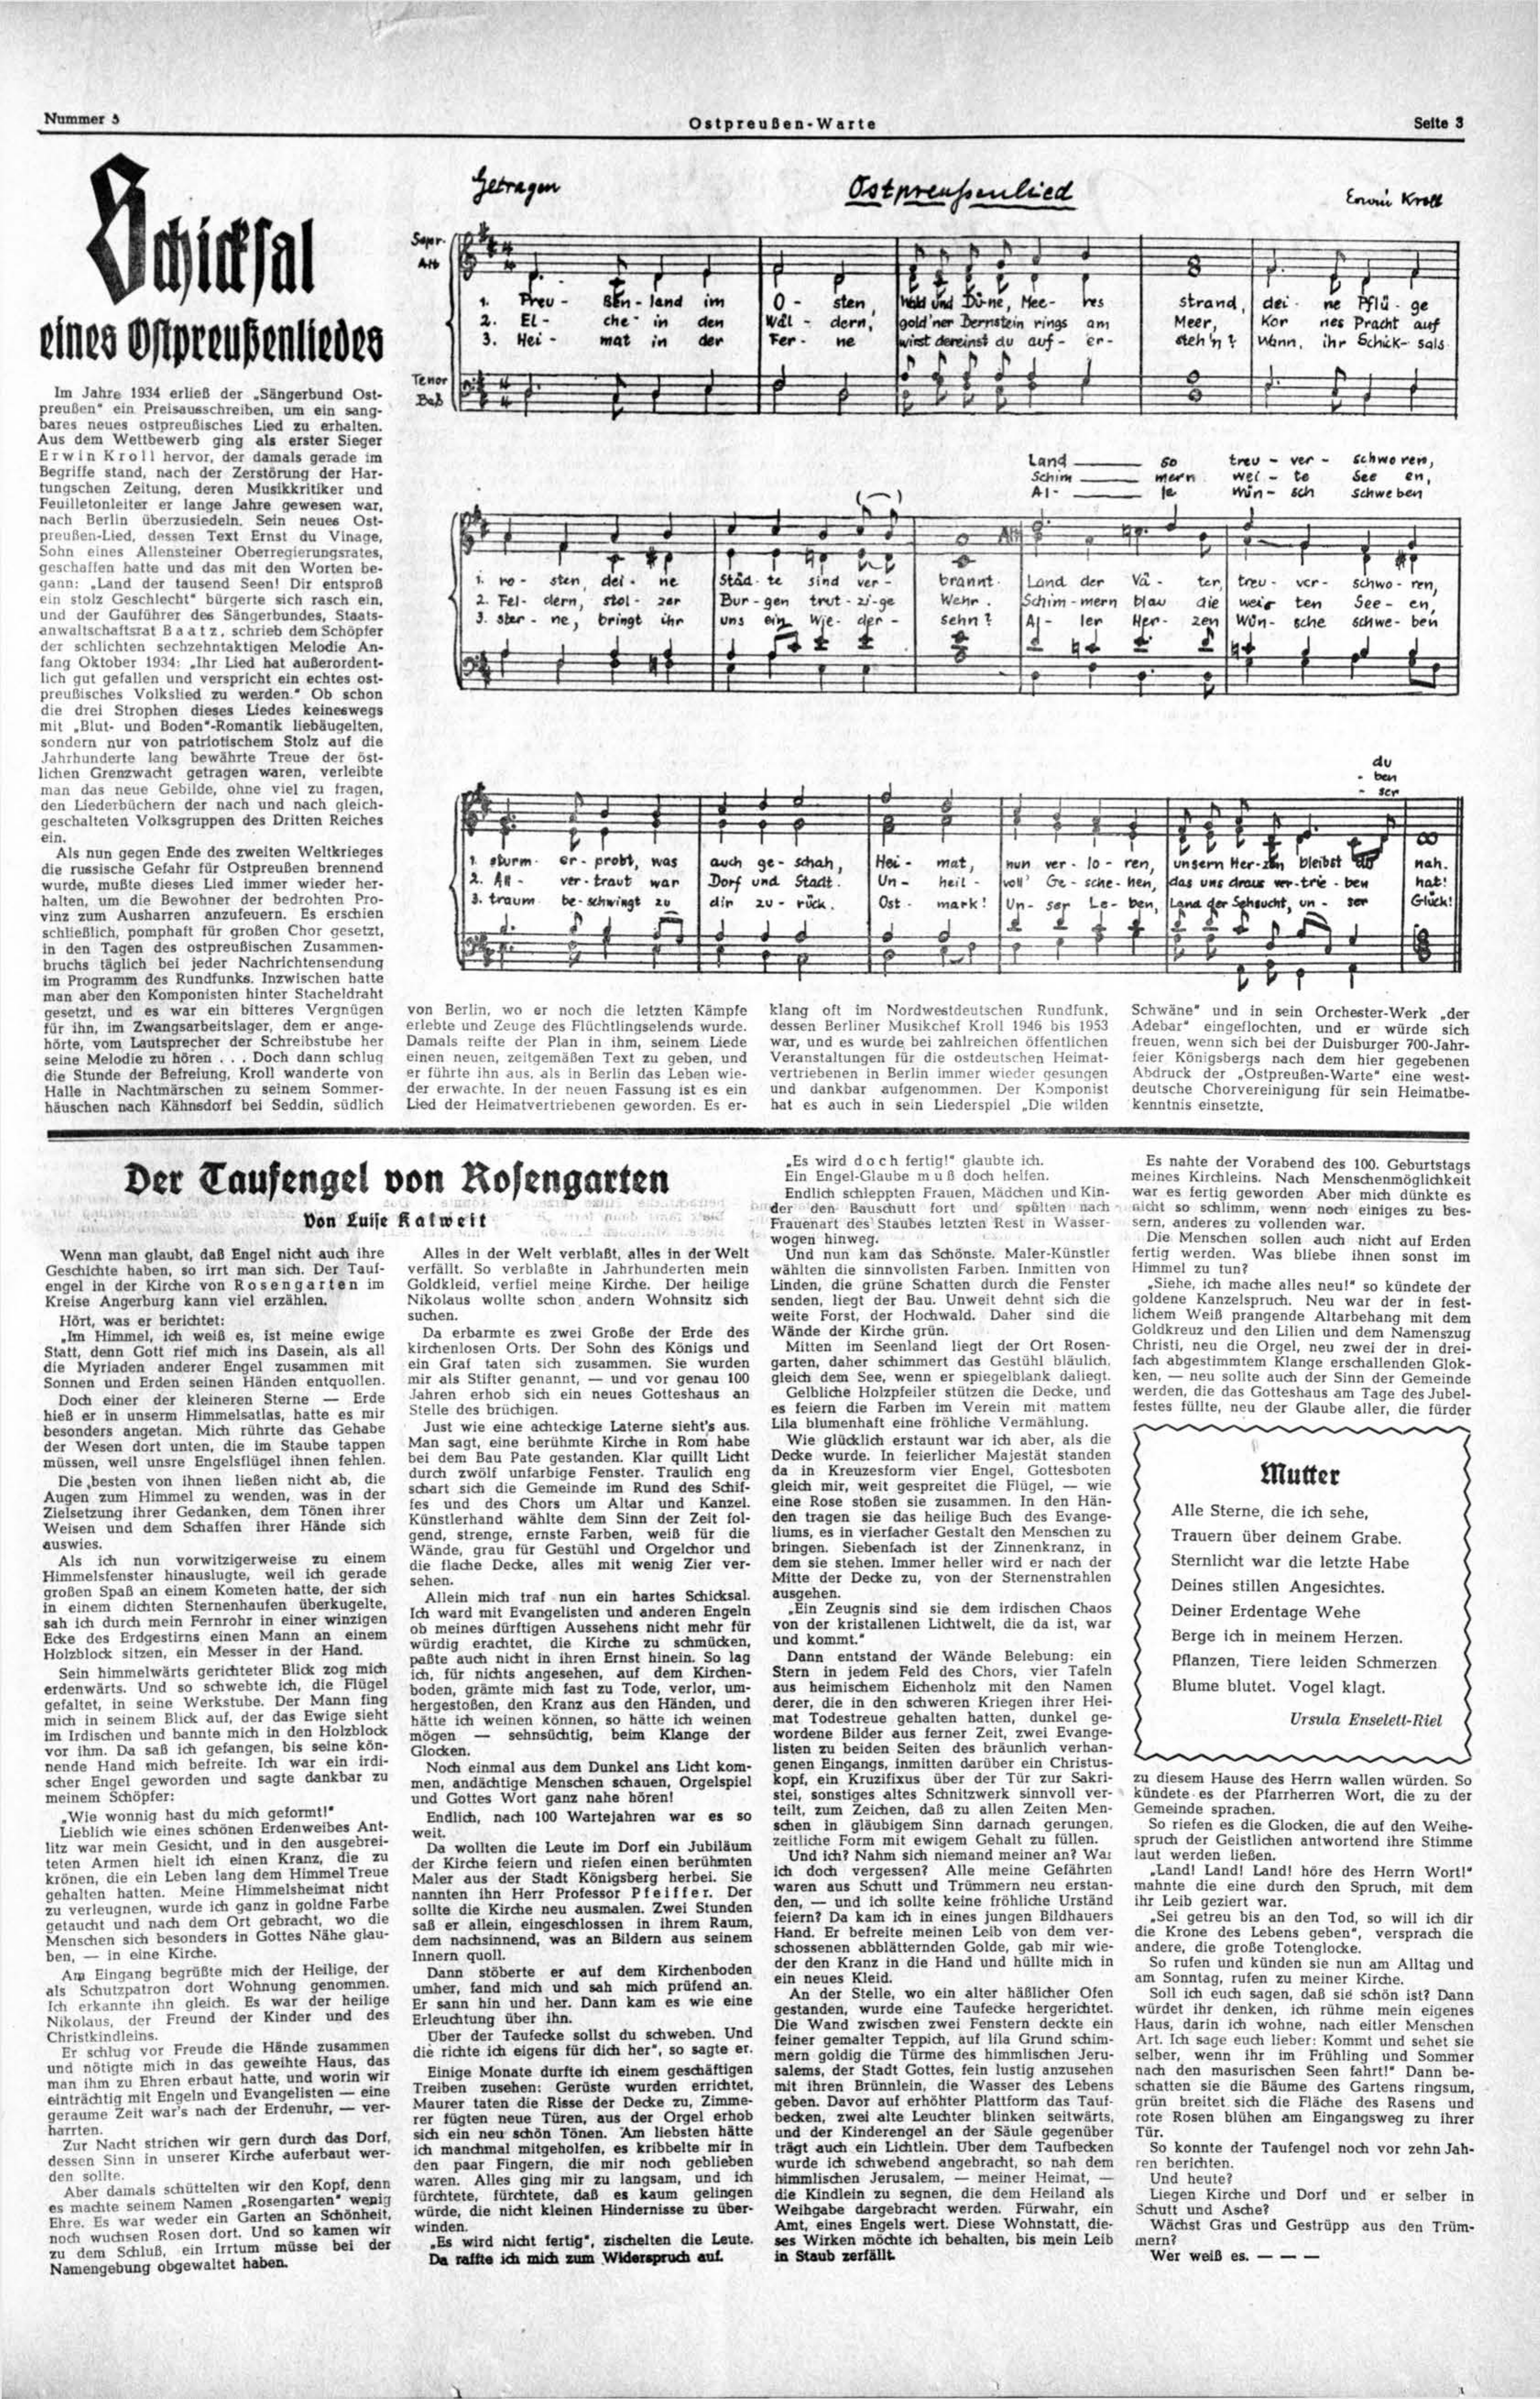 Nummer 5
Ostpreußen-Warte
Seite 3
Schicksal
eines Ostpreußenliedes
Im Jahre 1934 erließ der „Sängerbund Ost-
preußen" ein Preisausschreiben, um ein sang-
bares neues ostpreußisches Lied zu erhalten.
Aus dem Wettbewerb ging als erster Sieger
Erwin Kroll hervor, der damals gerade im
Begriffe stand, nach der Zerstörung der Har-
tungschen Zeitung, deren Musikkritiker und
Feuilletonleiter er lange Jahre gewesen war,
nach Berlin überzusiedeln. Sein neues Ost-
preußen-Lied, dessen Text Ernst du Vinage,
Sohn eines Allensteiner Oberregierungsrates,
geschaffen hatte und das mit den Worten be-
gann: „Land der tausend Seen! Dir entsproß
ein stolz Geschlecht" bürgerte sich rasch ein,
und der Gauführer des Sängerbundes, Staats-
anwaltschaftsrat Baatz, schrieb dem Schöpfer
der schlichten sechzehntaktigen Melodie An-
fang Oktober 1934: „Ihr Lied hat außerordent-
lich gut gefallen und verspricht ein echtes ost-
preußisches Volkslied zu werden." Ob schon
die drei Strophen dieses Liedes keineswegs
mit „Blut- und Boden"-Romantik liebäugelten,
sondern nur von patriotischem Stolz auf die
Jahrhunderte lang bewährte Treue der öst-
lichen Grenzwacht getragen waren, verleibte
man das neue Gebilde, ohne viel zu fragen,
den Liederbüchern der nach und nach gleich-
geschalteten Volksgruppen des Dritten Reiches
ein.
Als nun gegen Ende des zweiten Weltkrieges
die russische Gefahr für Ostpreußen brennend
wurde, mußte dieses Lied immer wieder her-
halten, um die Bewohner der bedrohten Pro-
vinz zum Ausharren anzufeuern. Es erschien
schließlich, pomphaft für großen Chor gesetzt,
in den Tagen des ostpreußischen Zusammen-
bruchs täglich bei jeder Nachrichtensendung
im Programm des Rundfunks. Inzwischen hatte
man aber den Komponisten hinter Stacheldraht
gesetzt, und es war ein bitteres Vergnügen
für ihn, im Zwangsarbeitslager, dem er ange-
hörte, vom Lautsprecher der Schreibstube her
seine Melodie zu hören . . . Doch dann schlug
die Stunde der Befreiung, Kroll wanderte von
Halle in Nachtmärschen zu seinem Sommer-
häuschen nach Kähnsdorf bei Seddin, südlich
Getragen
Ostpreußenlied
Erwin Kroll
Sopr.
Alt
1. Preu - ßen - land im O - sten, Wald und Dü-ne, Mee - res strand, dei - ne Pflü - ge
2. El - che in den Wäl - dern, gold'ner Bernstein rings am Meer, Kor nes Pracht auf
3. Hei - mat in der Fer - ne wirst dereinst du auf - er - steh'n? Wann, ihr Schick- sals
Tenor
Baß
Land so treu - ver - schworen,
Schim mern wei - te See en,
Al- le Wün - sch schweben
1. ro - sten, dei - ne Städ - te sind ver - brannt. Land der Vä - ter, treu - ver - schwo - ren,
2. Fel - dern, stol - zer Bur - gen trut - zi - ge Wehr. Schim - mern blau die wei ten See - en,
3. ster - ne, bringt ihr uns ein Wie - der - sehn? Al - ler Her - zen Wün - sche schwe - ben
du
- ben
- ser
1. sturm - er - probt, was auch ge - schah, Hei - mat, nun ver - lo - ren, unsern Her-zen bleibst du nah.
2. All - ver - traut war Dorf und Stadt. Un - heil - voll' Ge - sche - hen, das uns draus ver - trie - ben hat!
3. traum be - schwingt zu dir zu - rück. Ost - mark! Un - ser Le - ben, Land der Sehsucht, un - ser Glück!
von Berlin, wo er noch die letzten Kämpfe
erlebte und Zeuge des Flüchtlingselends wurde.
Damals reifte der Plan in ihm, seinem Liede
einen neuen, zeitgemäßen Text zu geben, und
er führte ihn aus, als in Berlin das Leben wie-
der erwachte. In der neuen Fassung ist es ein
Lied der Heimatvertriebenen geworden. Es er-
klang oft im Nordwestdeutschen Rundfunk,
dessen Berliner Musikchef Kroll 1946 bis 1953
war, und es wurde bei zahlreichen öffentlichen
Veranstaltungen für die ostdeutschen Heimat-
vertriebenen in Berlin immer wieder gesungen
und dankbar aufgenommen. Der Komponist
hat es auch in sein Liederspiel „Die wilden
Schwäne" und in sein Orchester-Werk „der
Adebar" eingeflochten, und er würde sich
freuen, wenn sich bei der Duisburger 700-Jahr-
feier Königsbergs nach dem hier gegebenen
Abdruck der „Ostpreußen-Warte" eine west-
deutsche Chorvereinigung für sein Heimatbe-
kenntnis einsetzte.
Der Taufengel von Rosengarten
Von Luise Kalweit
Wenn man glaubt, daß Engel nicht auch ihre
Geschichte haben, so irrt man sich. Der Tauf-
engel in der Kirche von Rosengarten im
Kreise Angerburg kann viel erzählen.
Hört, was er berichtet:
„Im Himmel, ich weiß es, ist meine ewige
Statt, denn Gott rief mich ins Dasein, als all
die Myriaden anderer Engel zusammen mit
Sonnen und Erden seinen Händen entquollen.
Doch einer der kleineren Sterne — Erde
hieß er in unserm Himmelsatlas, hatte es mir
besonders angetan. Mich rührte das Gehabe
der Wesen dort unten, die im Staube tappen
müssen, weil unsre Engelsflügel ihnen fehlen.
Die besten von ihnen ließen nicht ab, die
Augen zum Himmel zu wenden, was in der
Zielsetzung ihrer Gedanken, dem Tönen ihrer
Weisen und dem Schaffen ihrer Hände sich
auswies.
Als ich nun vorwitzigerweise zu einem
Himmelsfenster hinauslugte, weil ich gerade
großen Spaß an einem Kometen hatte, der sich
in einem dichten Sternenhaufen überkugelte,
sah ich durch mein Fernrohr in einer winzigen
Ecke des Erdgestirns einen Mann an einem
Holzblock sitzen, ein Messer in der Hand.
Sein himmelwärts gerichteter Blick zog mich
erdenwärts. Und so schwebte ich, die Flügel
gefaltet, in seine Werkstube. Der Mann fing
mich in seinem Blick auf, der das Ewige sieht
im Irdischen und bannte mich in den Holzblock
vor ihm. Da saß ich gefangen, bis seine kön-
nende Hand mich befreite. Ich war ein irdi-
scher Engel geworden und sagte dankbar zu
meinem Schöpfer:
„Wie wonnig hast du mich geformt!"
Lieblich wie eines schönen Erdenweibes Ant-
litz war mein Gesicht, und in den ausgebrei-
teten Armen hielt ich einen Kranz, die zu
krönen, die ein Leben lang dem Himmel Treue
gehalten hatten. Meine Himmelsheimat nicht
zu verleugnen, wurde ich ganz in goldne Farbe
getaucht und nach dem Ort gebracht, wo die
Menschen sich besonders in Gottes Nähe glau-
ben, — in eine Kirche.
Am Eingang begrüßte mich der Heilige, der
als Schutzpatron dort Wohnung genommen.
Ich erkannte ihn gleich. Es war der heilige
Nikolaus, der Freund der Kinder und des
Christkindleins.
Er schlug vor Freude die Hände zusammen
und nötigte mich in das geweihte Haus, das
man ihm zu Ehren erbaut hatte, und worin wir
einträchtig mit Engeln und Evangelisten — eine
geraume Zeit war's nach der Erdenuhr, — ver-
harrten.
Zur Nacht strichen wir gern durch das Dorf,
dessen Sinn in unserer Kirche auferbaut wer-
den sollte.
Aber damals schüttelten wir den Kopf, denn
es machte seinem Namen „Rosengarten" wenig
Ehre. Es war weder ein Garten an Schönheit,
noch wuchsen Rosen dort. Und so kamen wir
zu dem Schluß, ein Irrtum müsse bei der
Namengebung obgewaltet haben.
Alles in der Welt verblaßt, alles in der Welt
verfällt. So verblaßte in Jahrhunderten mein
Goldkleid, verfiel meine Kirche. Der heilige
Nikolaus wollte schon andern Wohnsitz sich
suchen.
Da erbarmte es zwei Große der Erde des
kirchenlosen Orts. Der Sohn des Königs und
ein Graf taten sich zusammen. Sie wurden
mir als Stifter genannt, — und vor genau 100
Jahren erhob sich ein neues Gotteshaus an
Stelle des brüchigen.
Just wie eine achteckige Laterne sieht's aus.
Man sagt, eine berühmte Kirche in Rom habe
bei dem Bau Pate gestanden. Klar quillt Licht
durch zwölf unfarbige Fenster. Traulich eng
schart sich die Gemeinde im Rund des Schif-
fes und des Chors um Altar und Kanzel.
Künstlerhand wählte dem Sinn der Zeit fol-
gend, strenge, ernste Farben, weiß für die
Wände, grau für Gestühl und Orgelchor und
die flache Decke, alles mit wenig Zier ver-
sehen.
Allein mich traf nun ein hartes Schicksal.
Ich ward mit Evangelisten und anderen Engeln
ob meines dürftigen Aussehens nicht mehr für
würdig erachtet, die Kirche zu schmücken,
paßte auch nicht in ihren Ernst hinein. So lag
ich, für nichts angesehen, auf dem Kirchen-
boden, grämte mich fast zu Tode, verlor, um-
hergestoßen, den Kranz aus den Händen, und
hätte ich weinen können, so hätte ich weinen
mögen — sehnsüchtig, beim Klange der
Glocken.
Noch einmal aus dem Dunkel ans Licht kom-
men, andächtige Menschen schauen, Orgelspiel
und Gottes Wort ganz nahe hören!
Endlich, nach 100 Wartejahren war es so
weit.
Da wollten die Leute im Dorf ein Jubiläum
der Kirche feiern und riefen einen berühmten
Maler aus der Stadt Königsberg herbei. Sie
nannten ihn Herr Professor Pfeiffer. Der
sollte die Kirche neu ausmalen. Zwei Stunden
saß er allein, eingeschlossen in ihrem Raum,
dem nachsinnend, was an Bildern aus seinem
Innern quoll.
Dann stöberte er auf dem Kirchenboden
umher, fand mich und sah mich prüfend an.
Er sann hin und her. Dann kam es wie eine
Erleuchtung über ihn.
Über der Taufecke sollst du schweben. Und
die richte ich eigens für dich her", so sagte er.
Einige Monate durfte ich einem geschäftigen
Treiben zusehen: Gerüste wurden errichtet,
Maurer taten die Risse der Decke zu, Zimme-
rer fügten neue Türen, aus der Orgel erhob
sich ein neu schön Tönen. Am liebsten hätte
ich manchmal mitgeholfen, es kribbelte mir in
den paar Fingern, die mir noch geblieben
waren. Alles ging mir zu langsam, und ich
fürchtete, fürchtete, daß es kaum gelingen
würde, die nicht kleinen Hindernisse zu über-
winden.
„Es wird nicht fertig", zischelten die Leute.
Da raffte ich mich zum Widerspruch auf.
„Es wird doch fertig!" glaubte ich.
Ein Engel-Glaube muß doch helfen.
Endlich schleppten Frauen, Mädchen und Kin-
der den Bauschutt fort und spülten nach
Frauenart des Staubes letzten Rest in Wasser-
wogen hinweg.
Und nun kam das Schönste. Maler-Künstler
wählten die sinnvollsten Farben. Inmitten von
Linden, die grüne Schatten durch die Fenster
senden, liegt der Bau. Unweit dehnt sich die
weite Forst, der Hochwald. Daher sind die
Wände der Kirche grün.
Mitten im Seenland liegt der Ort Rosen-
garten, daher schimmert das Gestühl bläulich,
gleich dem See, wenn er spiegelblank daliegt.
Gelbliche Holzpfeiler stützen die Decke, und
es feiern die Farben im Verein mit mattem
Lila blumenhaft eine fröhliche Vermählung.
Wie glücklich erstaunt war ich aber, als die
Decke wurde. In feierlicher Majestät standen
da in Kreuzesform vier Engel, Gottesboten
gleich mir, weit gespreitet die Flügel, — wie
eine Rose stoßen sie zusammen. In den Hän-
den tragen sie das heilige Buch des Evange-
liums, es in vierfacher Gestalt den Menschen zu
bringen. Siebenfach ist der Zinnenkranz, in
dem sie stehen. Immer heller wird er nach der
Mitte der Decke zu, von der Sternenstrahlen
ausgehen.
„Ein Zeugnis sind sie dem irdischen Chaos
von der kristallenen Lichtwelt, die da ist, war
und kommt."
Dann entstand der Wände Belebung: ein
Stern in jedem Feld des Chors, vier Tafeln
aus heimischem Eichenholz mit den Namen
derer, die in den schweren Kriegen ihrer Hei-
mat Todestreue gehalten hatten, dunkel ge-
wordene Bilder aus ferner Zeit, zwei Evange-
listen zu beiden Seiten des bräunlich verhan-
genen Eingangs, inmitten darüber ein Christus-
kopf, ein Kruzifixus über der Tür zur Sakri-
stei, sonstiges altes Schnitzwerk sinnvoll ver-
teilt, zum Zeichen, daß zu allen Zeiten Men-
schen in gläubigem Sinn darnach gerungen,
zeitliche Form mit ewigem Gehalt zu füllen.
Und ich? Nahm sich niemand meiner an? War
ich doch vergessen? Alle meine Gefährten
waren aus Schutt und Trümmern neu erstan-
den, — und ich sollte keine fröhliche Urständ
feiern? Da kam ich in eines jungen Bildhauers
Hand. Er befreite meinen Leib von dem ver-
schossenen abblätternden Golde, gab mir wie-
der den Kranz in die Hand und hüllte mich in
ein neues Kleid.
An der Stelle, wo ein alter häßlicher Ofen
gestanden, wurde eine Taufecke hergerichtet.
Die Wand zwischen zwei Fenstern deckte ein
feiner gemalter Teppich, auf lila Grund schim-
mern goldig die Türme des himmlischen Jeru-
salems, der Stadt Gottes, fein lustig anzusehen
mit ihren Brünnlein, die Wasser des Lebens
geben. Davor auf erhöhter Plattform das Tauf-
becken, zwei alte Leuchter blinken seitwärts,
und der Kinderengel an der Säule gegenüber
trägt auch ein Lichtlein. Über dem Taufbecken
wurde ich schwebend angebracht, so nah dem
himmlischen Jerusalem, — meiner Heimat, —
die Kindlein zu segnen, die dem Heiland als
Weihgabe dargebracht werden. Fürwahr, ein
Amt, eines Engels wert. Diese Wohnstatt, die-
ses Wirken möchte ich behalten, bis mein Leib
in Staub zerfällt.
Es nahte der Vorabend des 100. Geburtstags
meines Kirchleins. Nach Menschenmöglichkeit
war es fertig geworden Aber mich dünkte es
nicht so schlimm, wenn noch einiges zu bes-
sern, anderes zu vollenden war.
Die Menschen sollen auch nicht auf Erden
fertig werden. Was bliebe ihnen sonst im
Himmel zu tun?
„Siehe, ich mache alles neu!" so kündete der
goldene Kanzelspruch. Neu war der in fest-
lichem Weiß prangende Altarbehang mit dem
Goldkreuz und den Lilien und dem Namenszug
Christi, neu die Orgel, neu zwei der in drei-
fach abgestimmtem Klange erschallenden Glok-
ken, — neu sollte auch der Sinn der Gemeinde
werden, die das Gotteshaus am Tage des Jubel-
festes füllte, neu der Glaube aller, die fürder
Mutter
Alle Sterne, die ich sehe,
Trauern über deinem Grabe.
Sternlicht war die letzte Habe
Deines stillen Angesichtes.
Deiner Erdentage Wehe
Berge ich in meinem Herzen.
Pflanzen, Tiere leiden Schmerzen
Blume blutet. Vogel klagt.
Ursula Enselett-Riel
zu diesem Hause des Herrn wallen würden. So
kündete es der Pfarrherren Wort, die zu der
Gemeinde sprachen.
So riefen es die Glocken, die auf den Weihe-
spruch der Geistlichen antwortend ihre Stimme
laut werden ließen.
„Land! Land! Land! höre des Herrn Wort!"
mahnte die eine durch den Spruch, mit dem
ihr Leib geziert war.
„Sei getreu bis an den Tod, so will ich dir
die Krone des Lebens geben", versprach die
andere, die große Totenglocke.
So rufen und künden sie nun am Alltag und
am Sonntag, rufen zu meiner Kirche.
Soll ich euch sagen, daß sie schön ist? Dann
würdet ihr denken, ich rühme mein eigenes
Haus, darin ich wohne, nach eitler Menschen
Art. Ich sage euch lieber: Kommt und sehet sie
selber, wenn ihr im Frühling und Sommer
nach den masurischen Seen fahrt!" Dann be-
schatten sie die Bäume des Gartens ringsum,
grün breitet sich die Fläche des Rasens und
rote Rosen blühen am Eingangsweg zu ihrer
Tür.
So konnte der Taufengel noch vor zehn Jah-
ren berichten.
Und heute?
Liegen Kirche und Dorf und er selber in
Schutt und Asche?
Wächst Gras und Gestrüpp aus den Trüm-
mern?
Wer weiß es. — — —